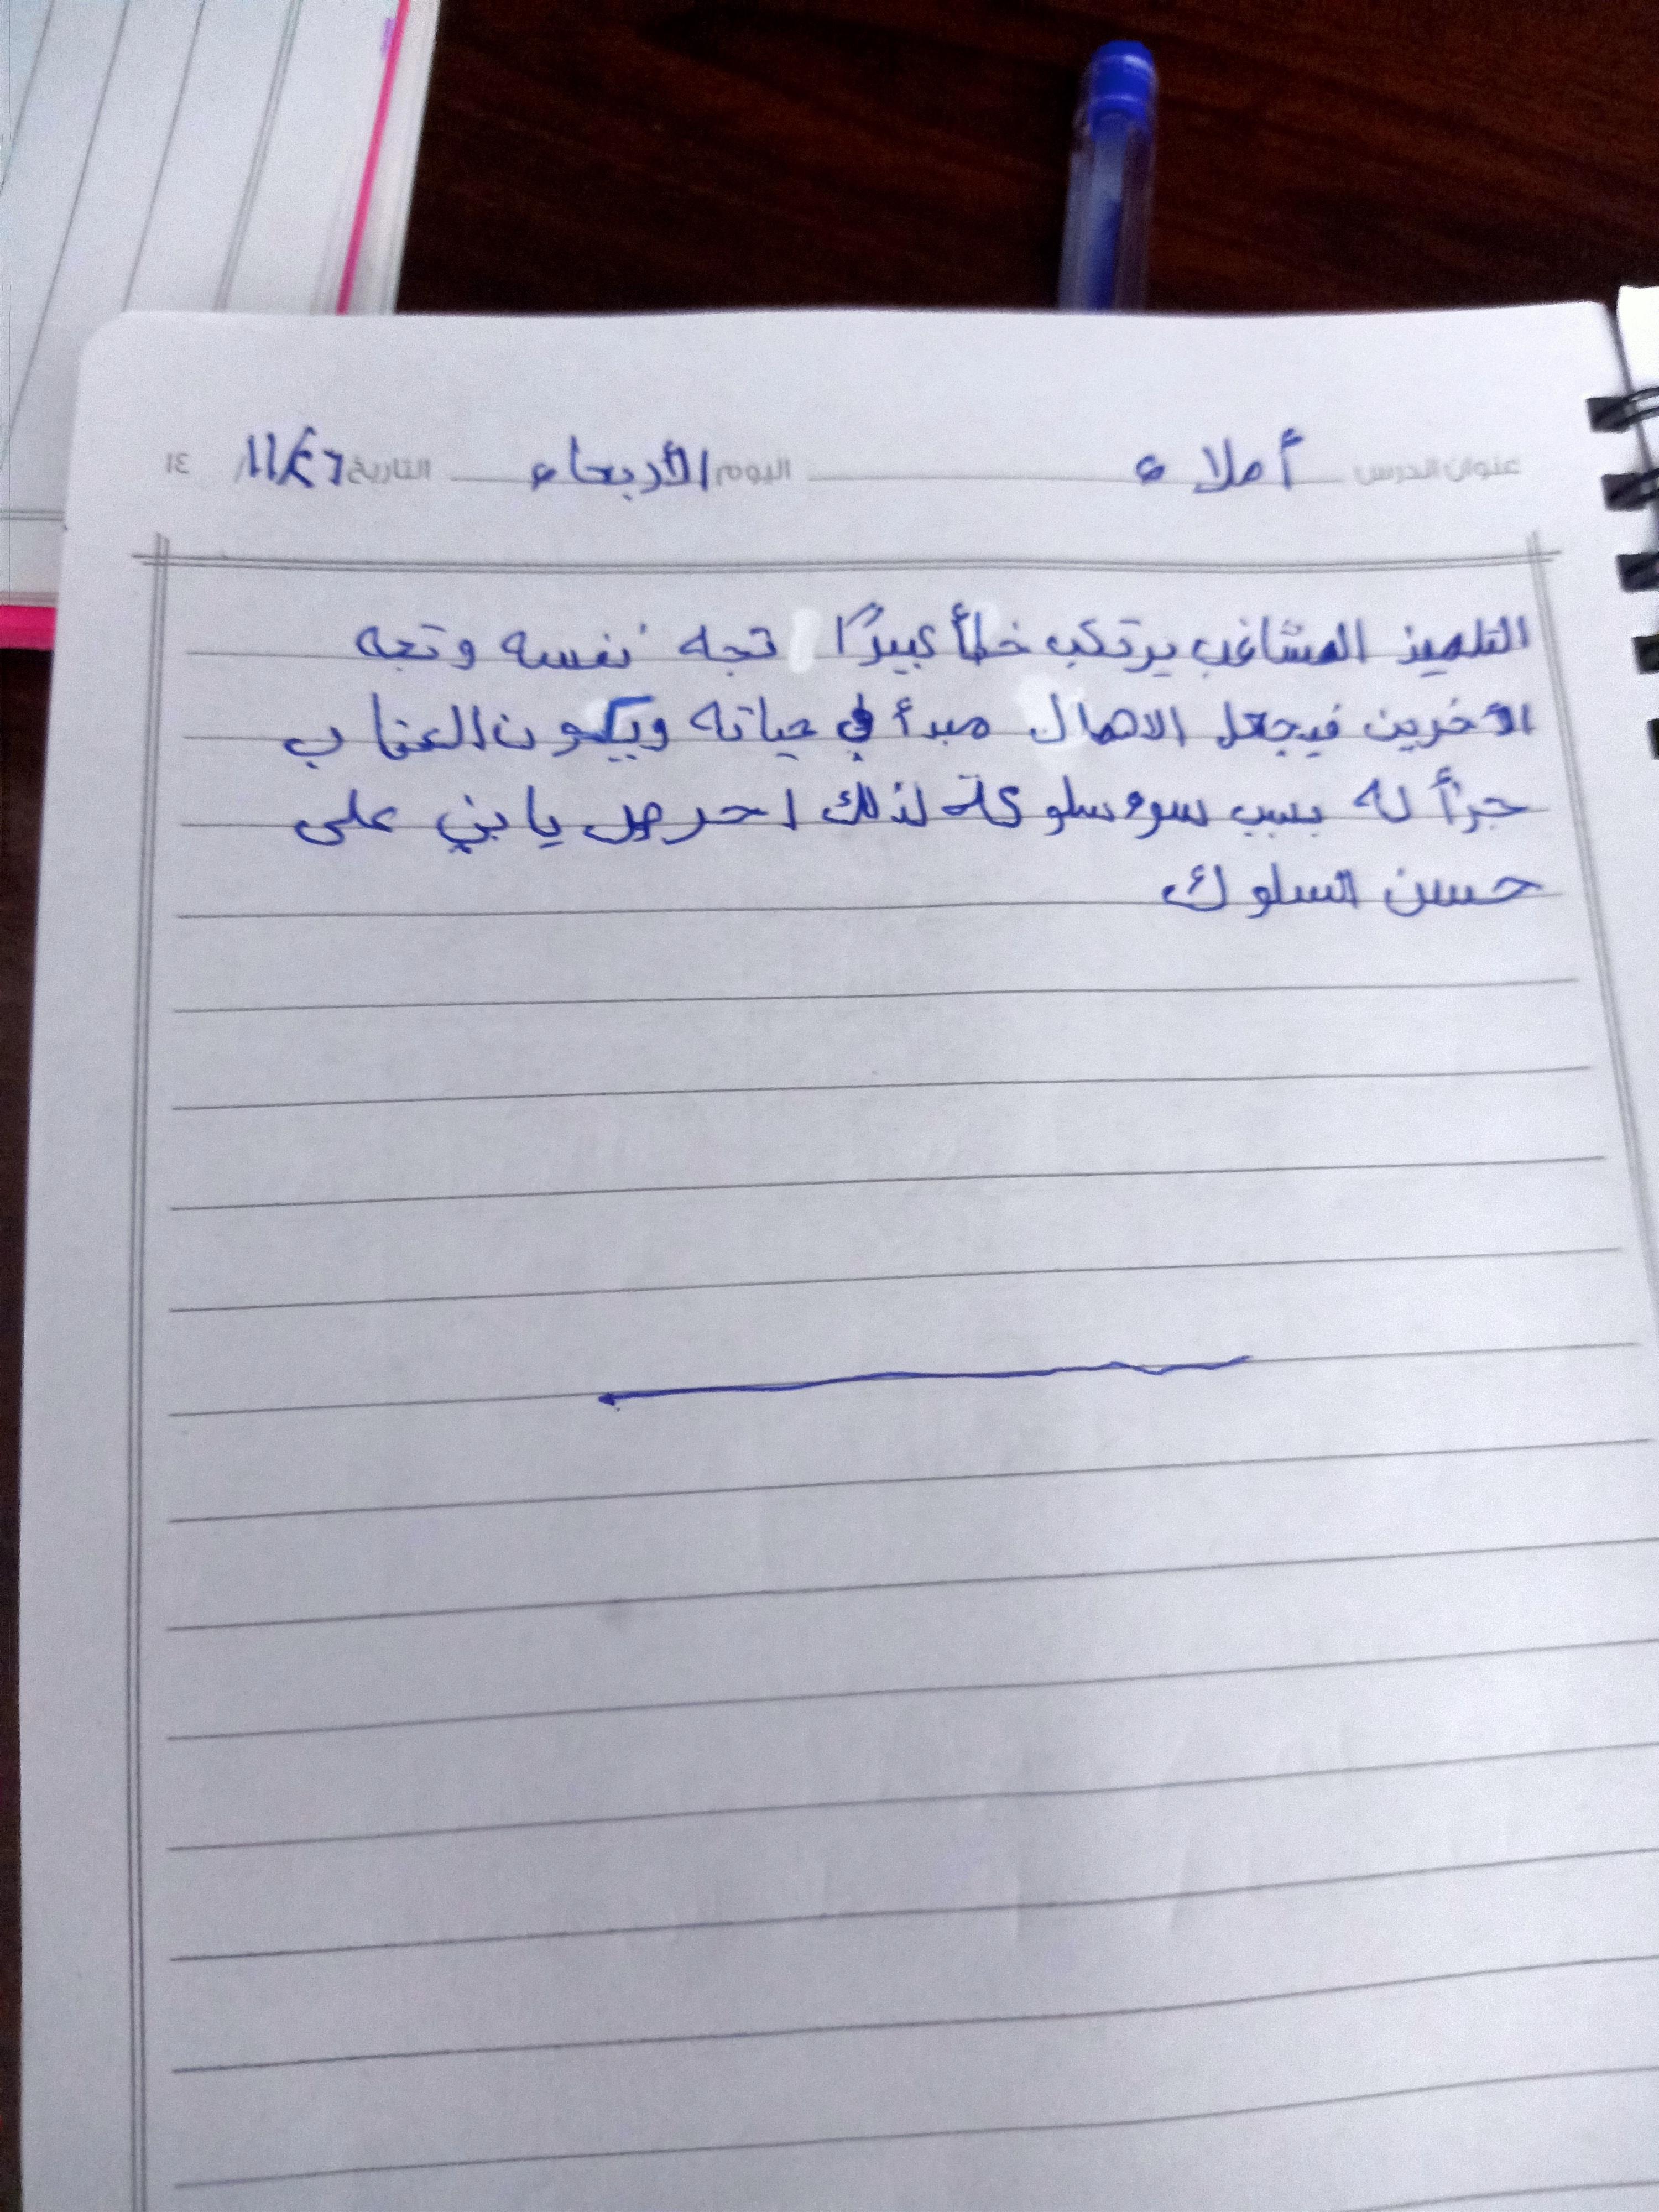 عنوان الدرس أملاء اليوم الأربعاء التاريخ ١١/٢٦ ١٤
التلميذ المشاغب يرتكب خطأ كبيرًا تجه نفسه وتجه
الآخرين فيجعل الاهمال مبدأ في حياته ويكون العقاب
جزأ له بسبب سوء سلوكة لذلك احرص يا بني على
حسن السلوك